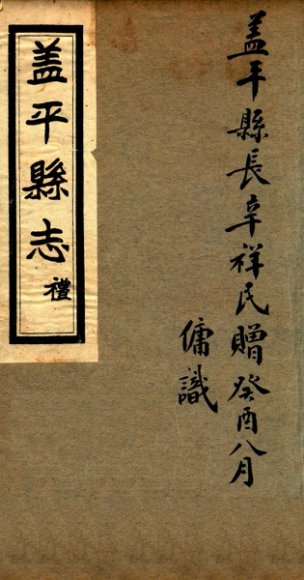 盖平縣長辛祥民贈癸酉八月
傭識
盖平縣志
禮